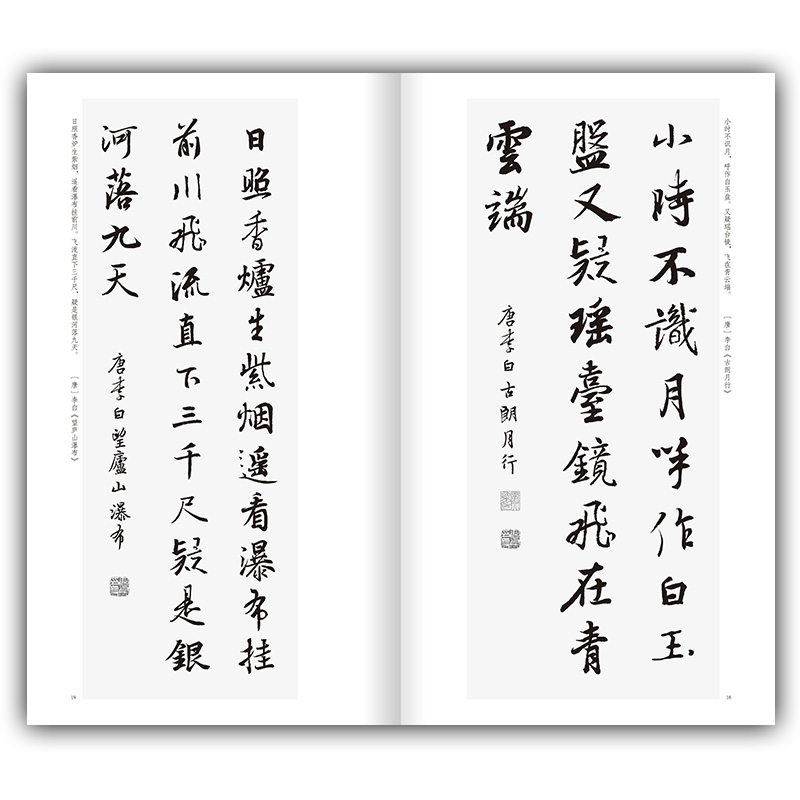 小时不识月，呼作白玉盘。又疑瑶台镜，飞在青云端。 [唐] 李白《古朗月行》
小時不識月呼作白玉
盤又疑瑶臺鏡飛在青
雲端
唐李白古朗月行
18
日照香爐生紫烟遥看瀑布挂
前川飛流直下三千尺疑是銀
河落九天
唐李白望廬山瀑布
日照香炉生紫烟，遥看瀑布挂前川。飞流直下三千尺，疑是银河落九天。 [唐] 李白《望庐山瀑布》
19